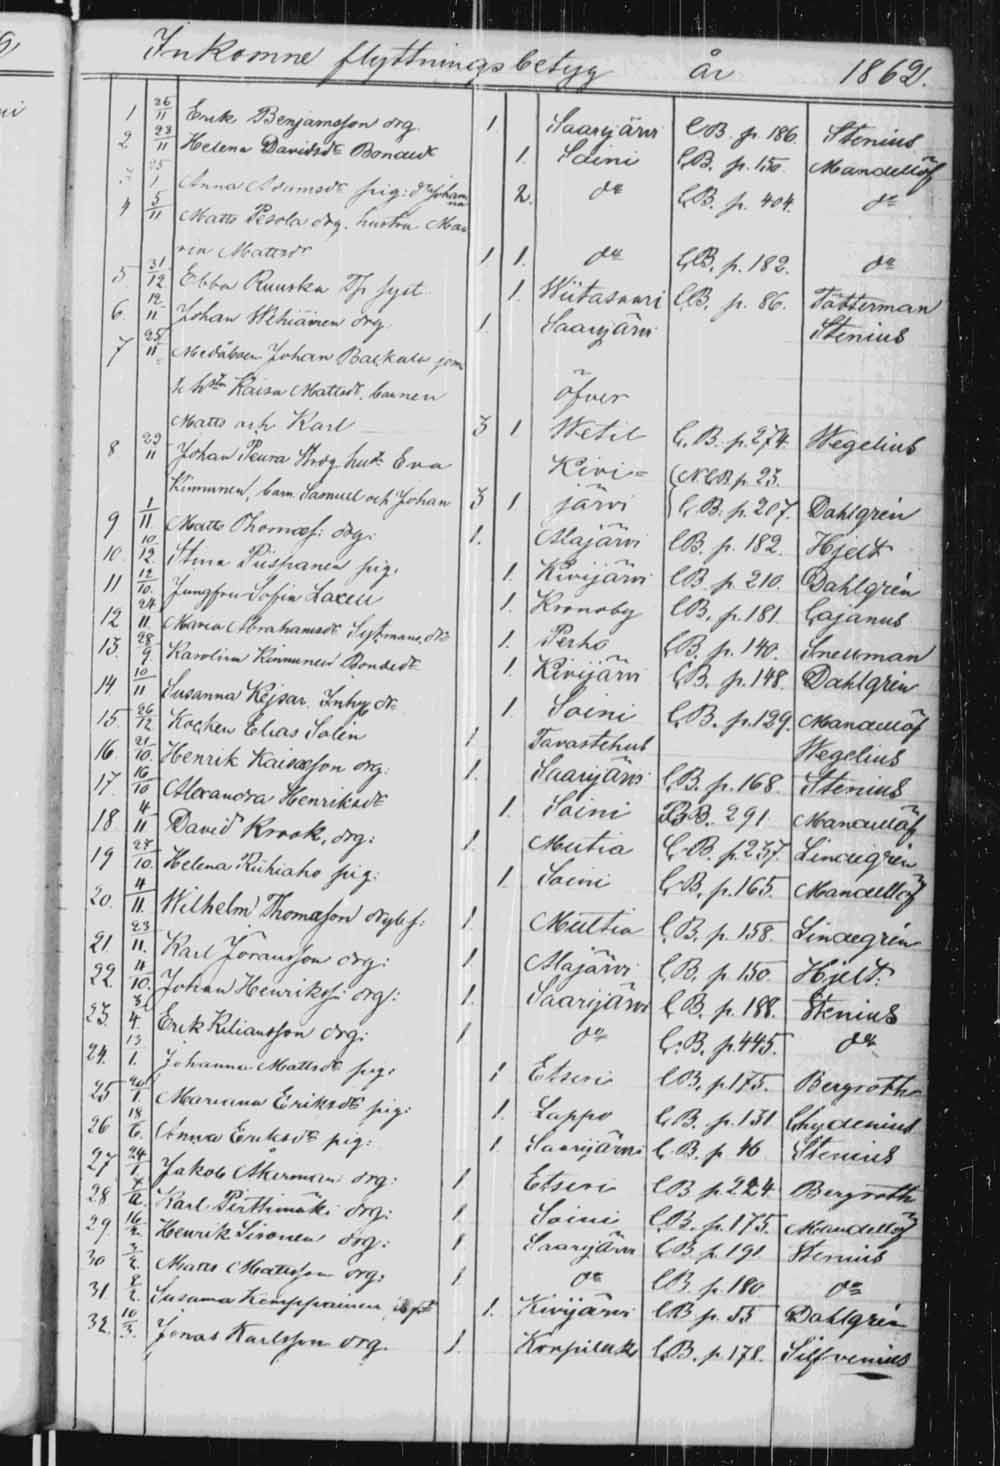 Inkomne flyttningsbetyg år 1862.
1 26/11 Erik Benjamsson drg. 1 Saarijärvi CB. p. 186. Stenius
2 28/11 Helena Davidsdr Bonded. 1. Soini CB. p. 150. Mandellöf
25/1 Anna Adamsdr pig: dr Johanna 2. do CB. p. 404. do
4 5/11 Matts Pesola drg. hustru Ma-
ria Mattsdr 1 1. do CB. p. 182. do
5. 31/12 Ebba Ruuska 1. Wiitasaari CB. p. 86. Tötterman
6. 12/11 Johan drg. 1. Saarijärvi Stenius
7 25/11 Johan
Kaisa Mattsdr, barnen öfver
Matts och Karl 3 1 Wetil C.B. p. 274. Wegelius
8 29/11 Johan Peura hust. Eva Kivi= (N.CB. p. 23.
Kinnunen, barn Samuel och Johan 3 1. järvi CB. p. 207. Dahlgrén
9 1/11 Matts Thomasf: drg: 1. Alajärvi CB. p. 182. Hjelt
10. 10/12 Stina Piispanen pig. 1. Kivijärvi CB. p. 210. Dahlgrén
11 12/10. Jungfru Sofia Laxell 1. Kronoby CB. p. 181. Cajanus
12 24/11. Maria Abrahamsdr 1. Perho CB. p. 140. Snellman
13. 28/9 Karolina Kinnunen Bondedr 1. Kivijärvi CB. p. 148. Dahlgrén
14. 10/11 Susanna Kejsar. Inhys dr 1. Soini CB. p. 129. Mandellöf
15. 26/12 Kocken Elias Solen 1. Tavastehus Wegelius
16. 21/10. Henrik Kaisasson drg: 1. Saarijärvi CB. p. 168. Stenius
17. 16/10 Alexandra Henriksdr 1. Soini B. 291. Mandellöf
18 4/11 David Krook, drg: 1. Multia C.B. p. 237. Lindegrén
19 27/10. Helena Riihiaho pig: 1. Soini CB. p. 165. Mandellöf
20. 4/11. Wilhelm Thomasson 1. Multia CB. p. 158. Lindegrén
21. 23/11. Karl Joransson drg: 1 Alajärvi CB. p. 150. Hjelt.
22. 4/10. Johan Henriksf: drg: 1. Saarijärvi CB. p. 188. Stenius
23. 3/4. Erik Kiliansson drg: 1 do C.B. p. 445. do
24. 13/1. Johanna Mattsdr pig: 1 Etseri CB. p. 175. Bergroth
25 20/1. Marianna Eriksdr pig: 1. Lappo CB. p. 131 Chydenius
26 18/6. Anna Eriksdr pig: 1 Saarijärvi C.B. p 46 Stenius
27 24/1. Jakob Åkerman drg: 1 Etseri CB p. 224. Bergroth
28 Karl Perttimäki drg: 1. Soini CB. p. 175. Mandellöf
29. 16/2. Henrik Sironen drg: 1 Saarijärvi CB. p. 191. Stenius
30 3/2. Matts Mattsson drg: 1. do CB. p. 180 do
31. 2/2. Susanna Kemppainen 1. Kivijärvi CB. p. 55 Dahlgrén
32. 10/3. Jonas Karlsson drg. 1. Korpilaks CB. p. 178. Silfvenius